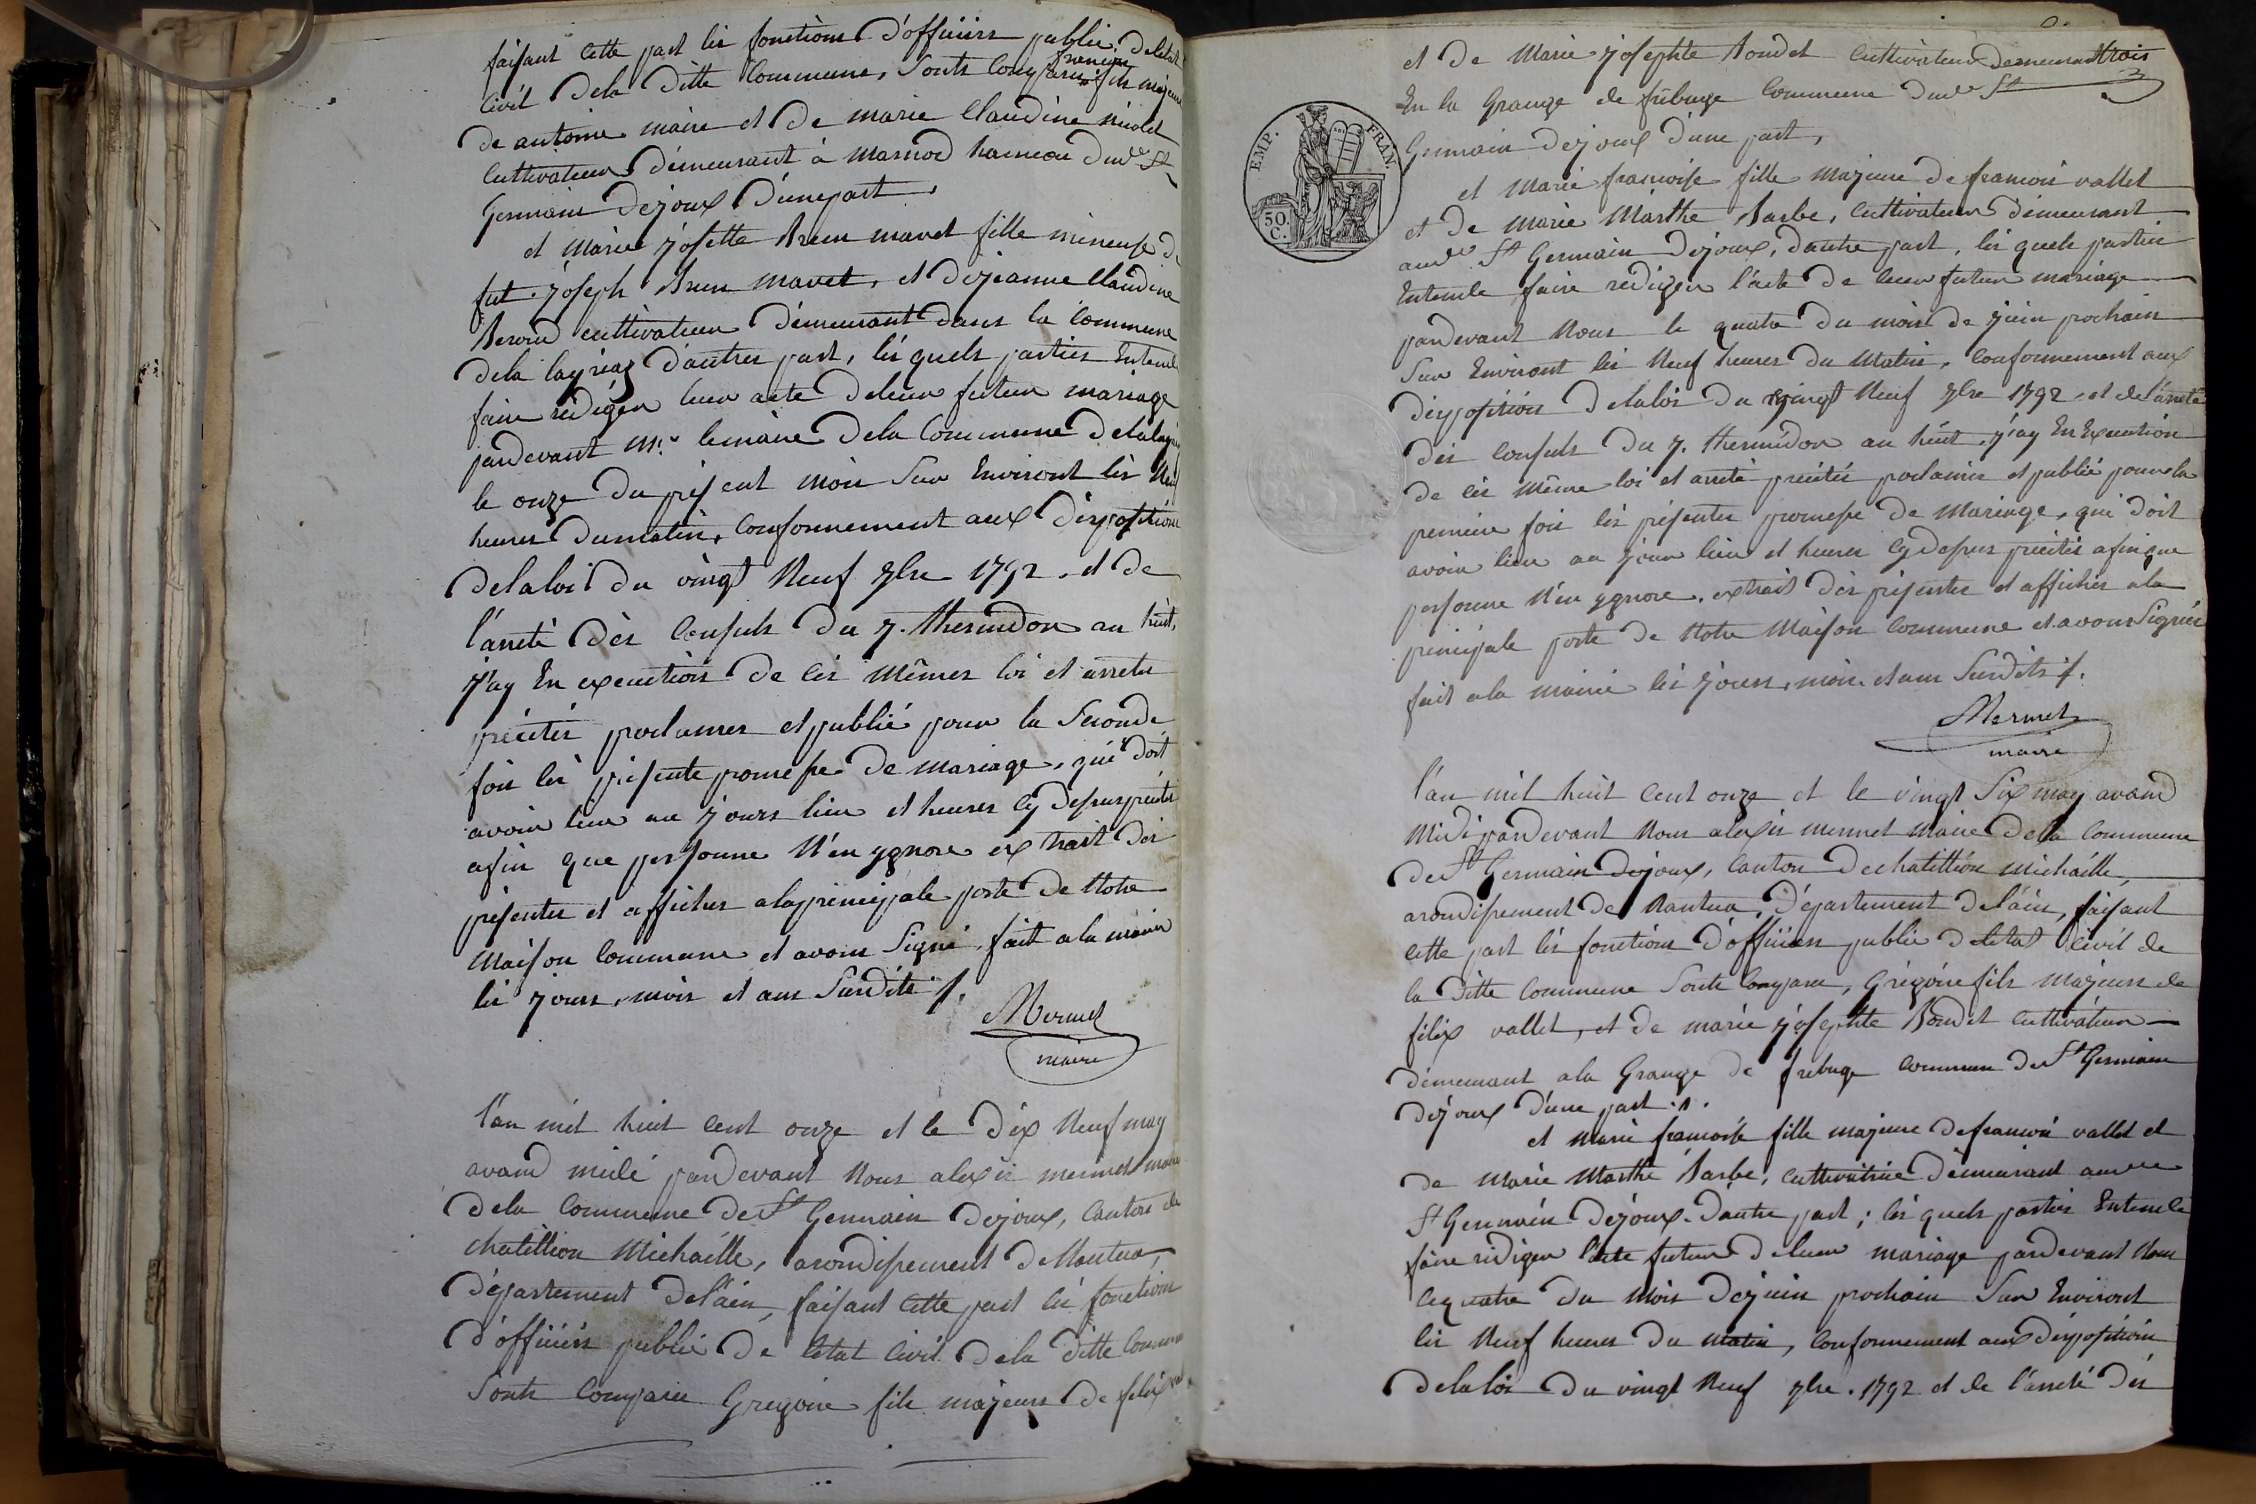 faisant cette part les fonctions d'officiers public de letat
civil dela ditte Commune, Sonts Comparu francois fils majeur
de antoine maire et de marie Claudine niolet
Cultivateur demeurant à marnod hameau dud. St
Germain dejoux d'une part,
et marie josette Brun mavet fille mineuse de
fut joseph Brun mavet, et de jeanne Claudine
Berrod cultivateur demeurant dans la Commune
dela layriaz d'autres part, les quels parties Entend
faire rédiger leur acte deleur futur mariage
pardevant Mr. lemaire dela Commune delalayriaz
le onze du présent mois Sur Environt les Neuf
heures dumatin, Conformement aux dispositions
delaloi du vingt Neuf 7bre 1792. et de
l'arreté des Consuls du 7. thermidon an huit,
j'ay En execution de ces mêmes loi et arretes
précités proclamer et publié pour la Seconde
fois les présente promesse de mariage, qui doit
avoir lieu au jours lieu et heures cy dessus précités
afin que personne N'en ygnore extrait des
présentes et afficher alaprincipale porte de Notre
Maison Commune et avons Signé, fait ala mairie
les jours, mois et ans Surdits /.
Mermet
maire
l'an mil huit cent onze et le dix Neuf may
avand midi pardevant Nous alexis mermet maire
dela Commune de St Germain dejoux, Canton de
chatillion Michaille, arondissement de Nantua,
département del'ain, faisant cette part les fonctions
d'officiers public de letat civil dela ditte Commune
Sonts Comparu Gregoire fils majeurs de felix vallet
trois
et de Marie josephte Boudet Cultivateur demeurant
En la Grange de frébuge Commune dud. St
Germain dejoux d'une part,
et Marie francoise fille majeure de francois vallet
et de Marie Marthe Barbe, Cultivateur demeurant
aud. St Germain dejoux, d'autre part, les quels parties
Entende faire rediger l'acte de leur futur mariage
pardevant Nous le quatre du mois de juin prochain
Sur Environt les Neuf heures du Matin, Conformement aux
disposition delaloi du vingt Neuf 7bre 1792. et de l'arreté
des Consuls du 7. thermidor an huit, j'ay En Execution
de ces Même loi et arreté précités proclamer et publié pour la
premiere fois les présentes promesse de Mariage, qui doit
avoir lieu au jour lieu et heures cy dessus précités afin que
personne N'en ygnore, extrait des présentes et afficher ala
principale porte de Notre Maison Commune et avons Signés
fait ala mairie les jours, mois et ans Surdits /.
Mermet
maire
EMP. FRAN.
50
C.
l'an mil huit Cent onze et le vingt Six may avand
Midi pardevant Nous alexis mermet Maire dela Commune
de St Germain dejoux, Canton dechatillion Michaille,
arondissement de Nantua, Département del'ain, faisant
cette part les fonctions d'officiers public deletat Civil de
la ditte Commune Sonts Comparu, Grégoire fils Majeurs de
félix vallet, et de marie josephte Boudet Cultivateur
demeurant ala Grange de frebuge Commune de St Germain
dejoux d'une part.
et Marie francoise fille majeure de francois vallet et
de Marie Marthe Barbe, Cultivatrice demeurant aud.
St Germain dejoux d'autre part; les quels parties Entende
faire rediger l'acte futur deleur mariage pardevant Nous
lequatre du Mois dejuin prochain Sur Environt
les Neuf heures du Matin, Conformement aux disposition
delaloi du vingt Neuf 7bre. 1792 et de l'arreté des